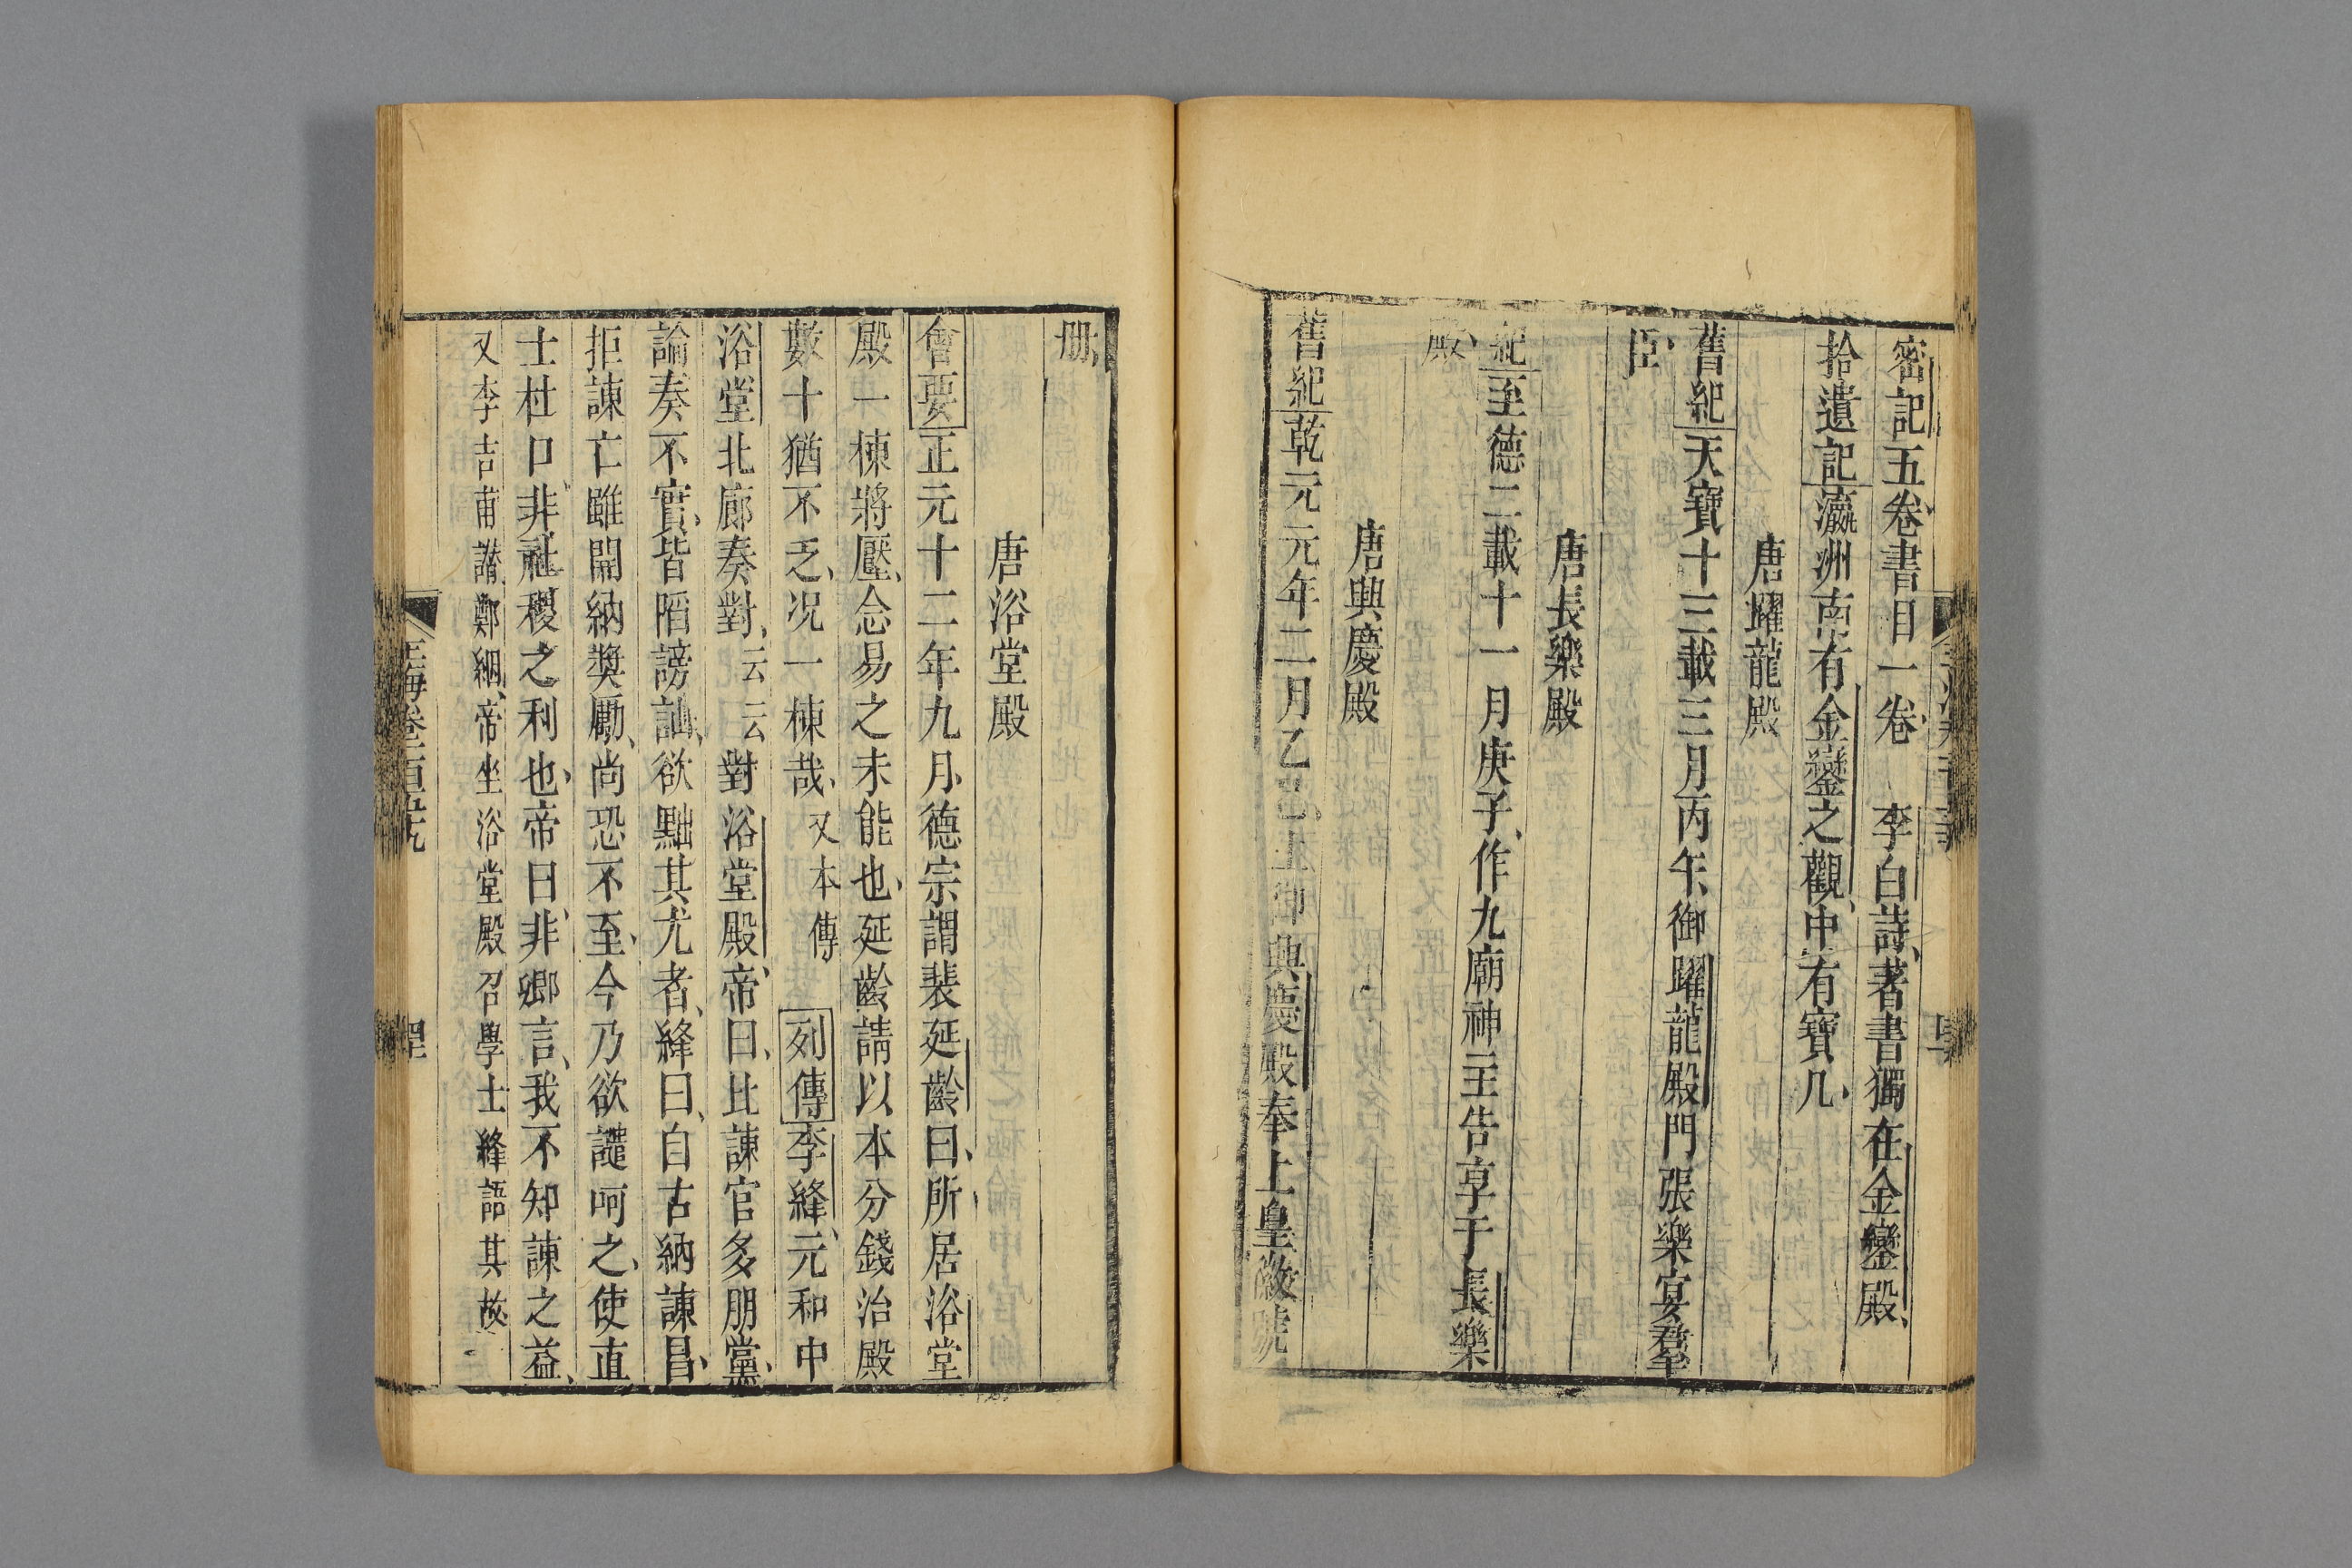 密記五卷書目一卷 李白詩著書獨在金鑾殿
拾遺記瀛洲南有金巒之觀中有寶几
唐躍龍殿
舊紀天寶十三載三月丙午御躍龍殿門張樂宴羣
臣
唐長樂殿
紀至德二載十一月庚子作九廟神主告享于長樂
殿
唐興慶殿
舊紀乾元元年二月乙巳上御興慶殿奉上皇徽號
册
唐浴堂殿
會要正元十二年九月德宗謂裴延齡曰所居浴堂
殿一棟將壓念易之未能也延齡請以本分錢治殿
數十猶不乏况一棟哉又本傳 列傳李絳元和中
浴堂北廊奏對云云對浴堂殿帝曰比諫官多朋黨
論奏不實皆陷謗訕欲黜其尤者絳曰自古納諫昌
拒諫亡雖開納獎勵尚恐不至今乃欲譴呵之使直
士杜口非社稷之利也帝曰非卿言我不知諫之益
又李吉甫譖鄭絪帝坐浴堂殿召學士絳語其故
玉海卷一百五十九